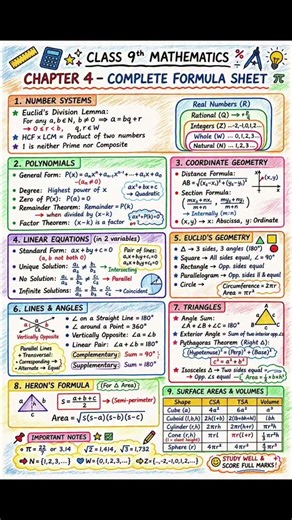 CLASS 9th MATHEMATICS
CHAPTER 4 - COMPLETE FORMULA SHEET π
1. NUMBER SYSTEMS
★ Euclid's Division Lemma:
For any a, b ∈ N, b ≠ 0 ⇒ a = bq + r
→ 0 ≤ r < b, q, r ∈ W
★ HCF x LCM = Product of two numbers
★ 1 is neither Prime nor Composite
Real Numbers (R)
Rational (Q)
Integers (Z) ... -2,-1,0,1,2...
Whole (W) ... 0,1,2,3...
Natural (N) ... 1,2,3...
2. POLYNOMIALS
General Form:
Degree: Highest power of x
Zero of P(x): P(a) = 0
Remainder Theorem: Remainder = P(k)
→ when divided by (x-k)
Factor Theorem: (x-k) is a factor
ax² + bx + c
→ Quadratic
3. COORDINATE GEOMETRY
Distance Formula:
AB = √(x₂-x₁)² + (y₂-y₁)²
Section Formula:
→ Internally (m:n)
(x, y) → x: Abscissa, y: Ordinate
4. LINEAR EQUATIONS (in 2 variables)
Standard Form: ax + by + c = 0
(a, b not both 0)
Unique Solution:
No Solution:
Infinite Solutions:
Pair of lines:
Intersecting
Parallel
Coincident
5. EUCLID'S GEOMETRY
Δ → 3 sides, 3 angles (180°)
Square → All sides equal, ∠ = 90°
Rectangle → Opp. sides equal
Parallelogram → Opp. sides ∥ & equal
Circle →
Circumference = 2πr
Area = πr²
6. LINES & ANGLES
∠ on a Straight Line = 180°
∠ around a Point = 360°
Vertically Opposite: ∠a = ∠b
Linear Pair: ∠a + ∠b = 180°
Complementary: Sum = 90°
Supplementary: Sum = 180°
Vertically Opposite
Parallel Lines
+ Transversal:
Corresponding
Alternate → Equal
7. TRIANGLES
★ Angle Sum:
∠A + ∠B + ∠C = 180°
★ Exterior Angle = Sum of two interior opp. ∠s
★ Pythagoras Theorem (Right Δ):
(Hypotenuse)² = (Perp)² + (Base)²
c² = a² + b²
★ Isosceles Δ → Two sides equal
→ Opp. ∠s equal
8. HERON'S FORMULA (For Δ Area)
s = a+b+c/2 → (Semi-perimeter)
Area = √s(s-a)(s-b)(s-c)
9. SURFACE AREAS & VOLUMES
Shape CSA TSA Volume
Cube (a) 4a² 6a² a³
Cuboid (l,b,h) 2h(l+b) 2(lb+bh+hl) lbh
Cylinder (r,h) 2πrh 2πr(h+r) πr²h
Cone (r,h) πrl πr(l+r)
Sphere (r) 4πr² 4πr²
IMPORTANT NOTES
√2 = 1.414, √3 = 1.732
→ N = {1,2,3,...} W = {0,1,2,...} → Z = {...,-2,-1,0,1,2,...}
STUDY WELL &
SCORE FULL MARKS!